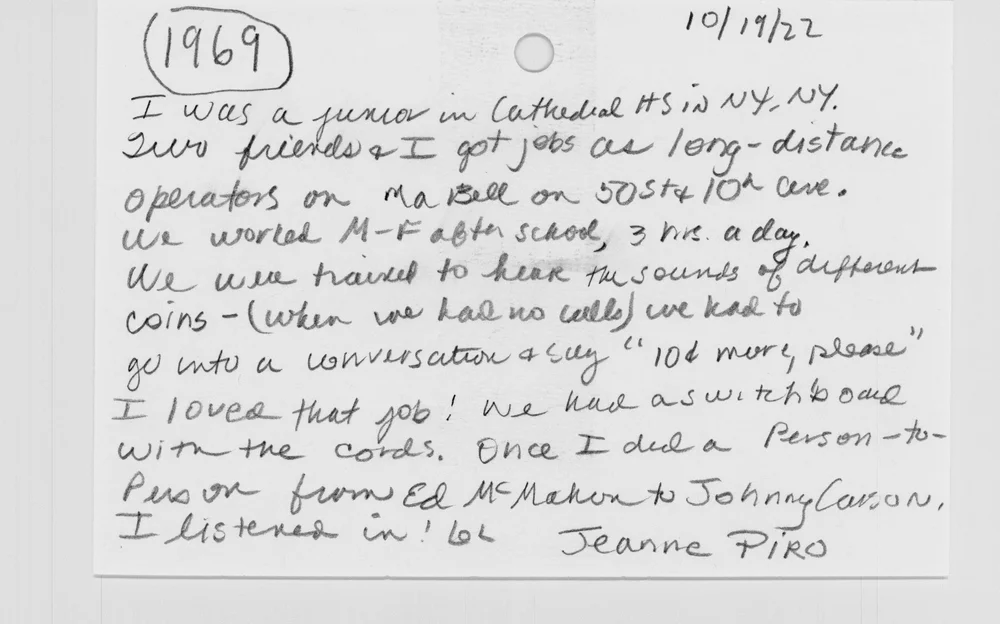 1969
10/19/22
I was a junior in Cathedral HS in NY, NY.
Two friends & I got jobs as long-distance
operators on Ma Bell on 50St & 10th Ave.
We worked M-F after school, 3 hrs. a day.
We were trained to hear the sounds of different
coins - (when we had no calls) we had to
go into a conversation & say "10¢ more, please"
I loved that job! We had a switchboard
with the cords. Once I did a Person-to-
Person from Ed McMahon to Johnny Carson.
I listened in! LOL
Jeanne PIRO